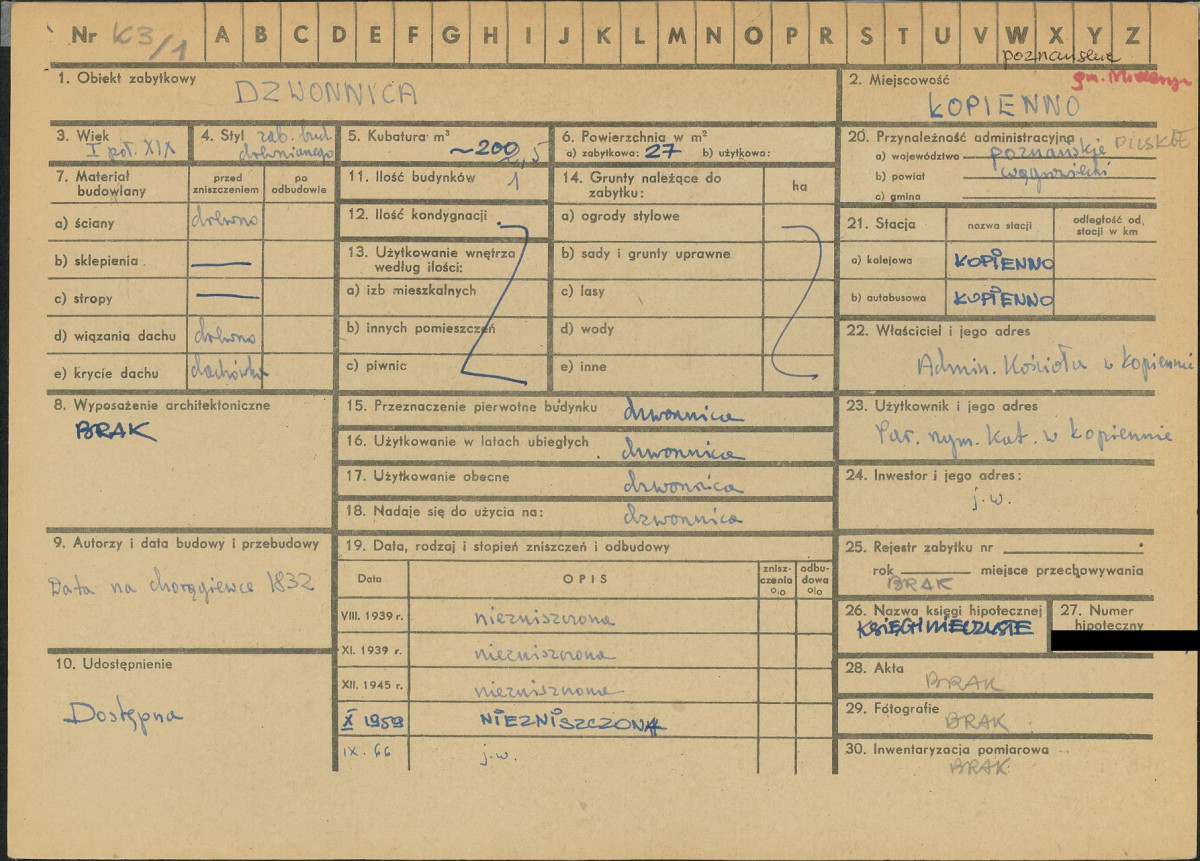 Nr K3/1 A B C D E F G H I J K L M N O P R S T U V W X Y Z
poznańskie
1. Obiekt zabytkowy
DZWONNICA
2. Miejscowość
gm.
KOPIENNO
3. Wiek
I poł. XIX
4. Styl zab. bud.
drewnianego
5. Kubatura m³
~200
6. Powierzchnia w m²
a) zabytkowa: 27 b) użytkowa:
20. Przynależność administracyjna
a) województwo poznańskie PILSKIE
b) powiat wągrowiecki
c) gmina
7. Materiał budowlany
przed zniszczeniem
po odbudowie
a) ściany drewno
b) sklepienia —
c) stropy —
d) wiązania dachu drewno
e) krycie dachu dachówka
11. Ilość budynków 1
12. Ilość kondygnacji
13. Użytkowanie wnętrza
według ilości:
a) izb mieszkalnych
b) innych pomieszczeń
c) piwnic
14. Grunty należące do
zabytku:
ha
a) ogrody stylowe
b) sady i grunty uprawne
c) lasy
d) wody
e) inne
21. Stacja
nazwa stacji
odległość od
stacji w km
a) kolejowa KOPIENNO
b) autobusowa KOPIENNO
22. Właściciel i jego adres
Admin. Kościoła w Kopiennie
8. Wyposażenie architektoniczne
BRAK
15. Przeznaczenie pierwotne budynku dzwonnica
16. Użytkowanie w latach ubiegłych dzwonnica
17. Użytkowanie obecne dzwonnica
18. Nadaje się do użycia na: dzwonnica
23. Użytkownik i jego adres
Par. rzym. kat. w Kopiennie
24. Inwestor i jego adres:
j.w.
9. Autorzy i data budowy i przebudowy
Data na chorągiewce 1832
10. Udostępnienie
Dostępna
19. Data, rodzaj i stopień zniszczeń i odbudowy
Data
OPIS
znisz-
czenia
%
odbu-
dowa
%
VIII. 1939 r. niezniszczona
XI. 1939 r. niezniszczona
XII. 1945 r. niezniszczona
X 1959 NIEZNISZCZONA
IX. 66 j.w.
25. Rejestr zabytku nr
rok miejsce przechowywania
BRAK
26. Nazwa księgi hipotecznej
KSIĘGI WIECZYSTE
27. Numer
hipoteczny
28. Akta
BRAK
29. Fotografie
BRAK
30. Inwentaryzacja pomiarowa
BRAK